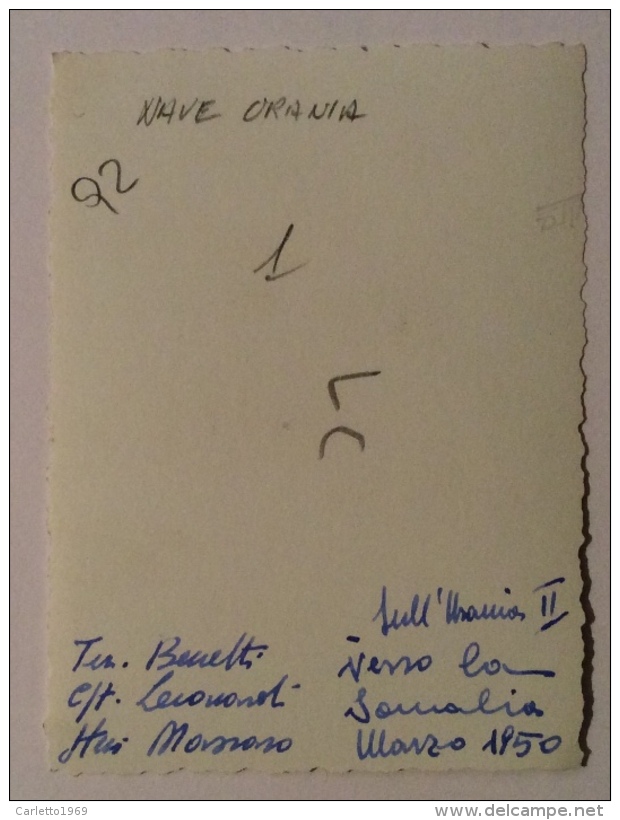 NAVE URANIA
92
1
Sull'Urania II
Ten. Benetti
Verso la
C/t. Leonardi
Somalia
Massaso
Marzo 1950
Carletto1969
www.delcampe.net